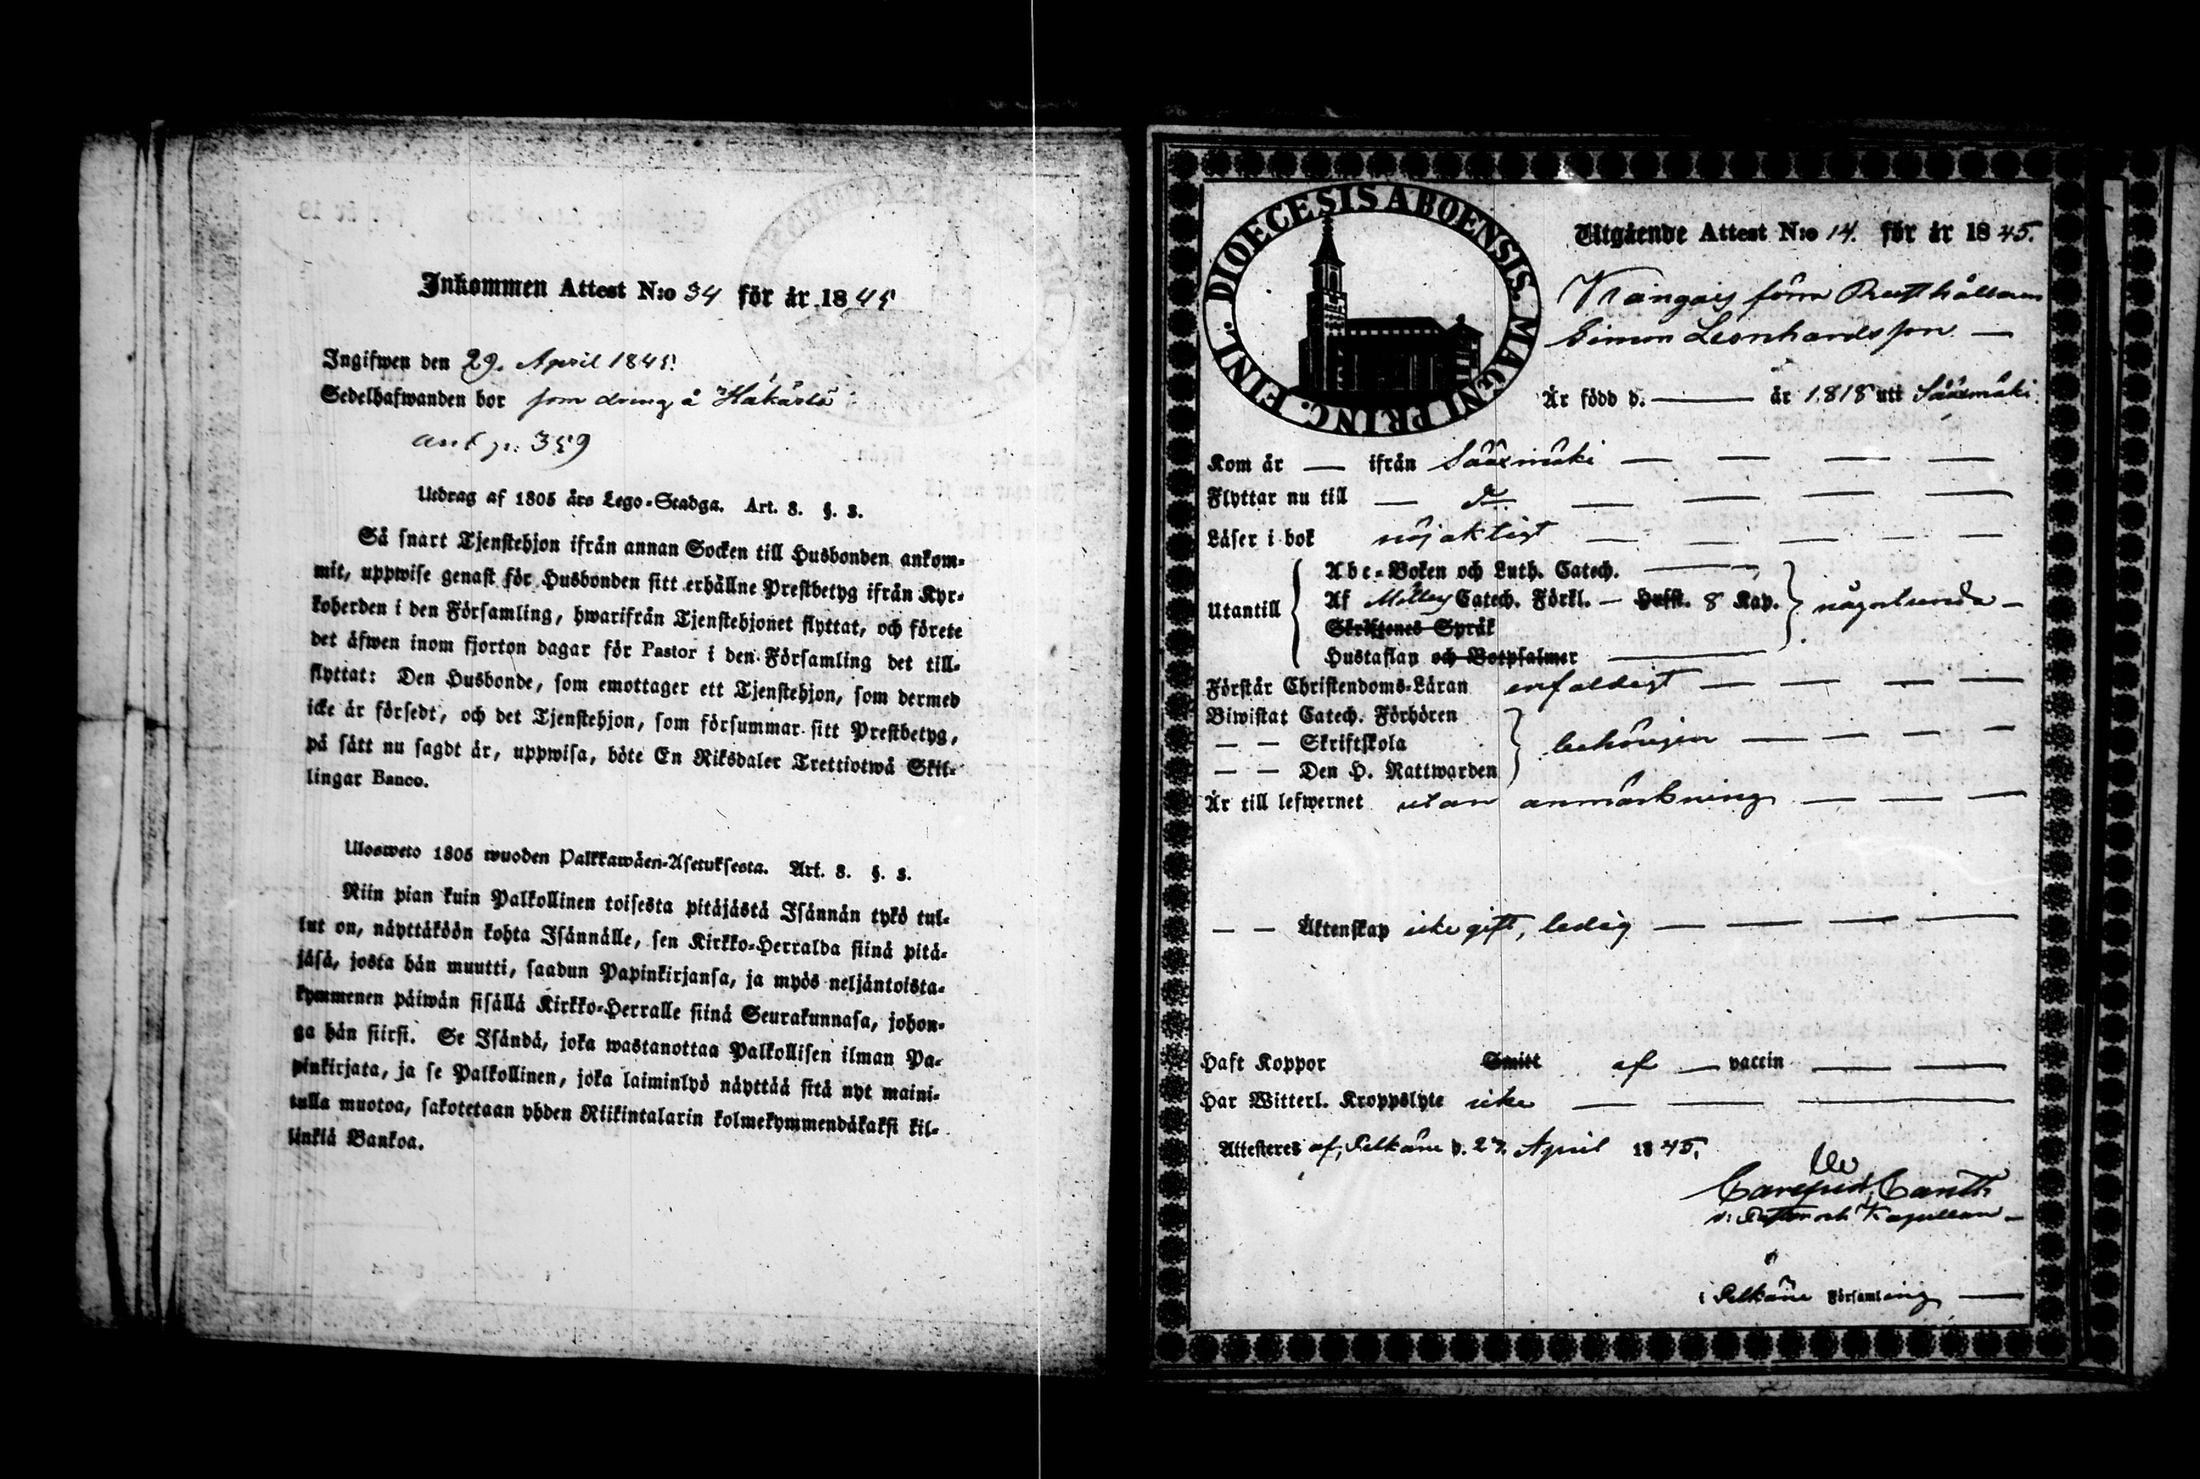 Inkommen Attest N:o 34 för år 1845
Ingifwen den 29. April 1845.
Sedelhafwanden bor som dreng å Hakärlä
ant p: 359
Utdrag af 1805 års Lego-Stadga. Art. 8. §. 3.
Så snart Tjenstehjon ifrån annan Socken till Husbonden ankom-
mit, uppwise genast för Husbonden sitt erhållne Prestbetyg ifrån Kyr-
koherden i den Församling, hwarifrån Tjenstehjonet flyttat, och förete
det äfwen inom fjorton dagar för Pastor i den Församling det till-
flyttat: Den Husbonde, som emottager ett Tjenstehjon, som dermed
icke är försedt, och det Tjenstehjon, som försummar sitt Prestbetyg,
på sätt nu sagdt är, uppwisa, böte En Riksdaler Trettiotwå Skil-
lingar Banco.
Ulosweto 1805 wuoden Palkkawäen-Asetuksesta. Art. 8. §. 3.
Niin pian kuin Palkollinen toisesta pitäjästä Isännän tykö tul-
lut on, näyttäköön kohta Isännälle, sen Kirkko-Herralda siinä pitä-
jäsä, josta hän muutti, saadun Papinkirjansa, ja myös neljäntoista-
kymmenen päiwän sisällä Kirkko-Herralle siinä Seurakunnasa, johon-
ga hän siirsi. Se Isändä, joka wastanottaa Palkollisen ilman Pa-
pinkirjata, ja se Palkollinen, joka laiminlyö näyttää sitä nyt maini-
tulla muotoa, sakotetaan yhden Riikintalarin kolmekymmendäkaksi kil-
linkiä Bankoa.
DIOECESIS ABOENSIS. MAGNI PRINC. FINL.
Utgående Attest N:o 14. för år 1845.
förra
Simon Leonhardsson —
Är född d. — år 1818 utt Sääxmäki.
Kom år — ifrån Sääxmäki — — — —
Flyttar nu till — — — — —
Läser i bok nöjaktigt — — — — —
Utantill
Abc-Boken och Luth. Catech. —
Af Catech. Förkl. — Hufst. 8 Kap. någorlunda —
Skriftenes Språk
Hustaflan och Botpsalmer —
Förstår Christendoms-Läran enfaldigt — — — —
Biwistat Catech. Förhören
— — Skriftskola behörigen — — — —
— — Den H. Nattwarden
Är till lefwernet utan anmärkning — — —
— — Äktenskap icke gift, ledig — — — —
Haft Koppor Smitt af — vaccin — —
Har Witterl. Kroppslyte icke — — —
Attesteras af, Pelkäne d. 27. April 1845.
Canth
v: Pastor och Kapellan —
i Pelkäne Församling —